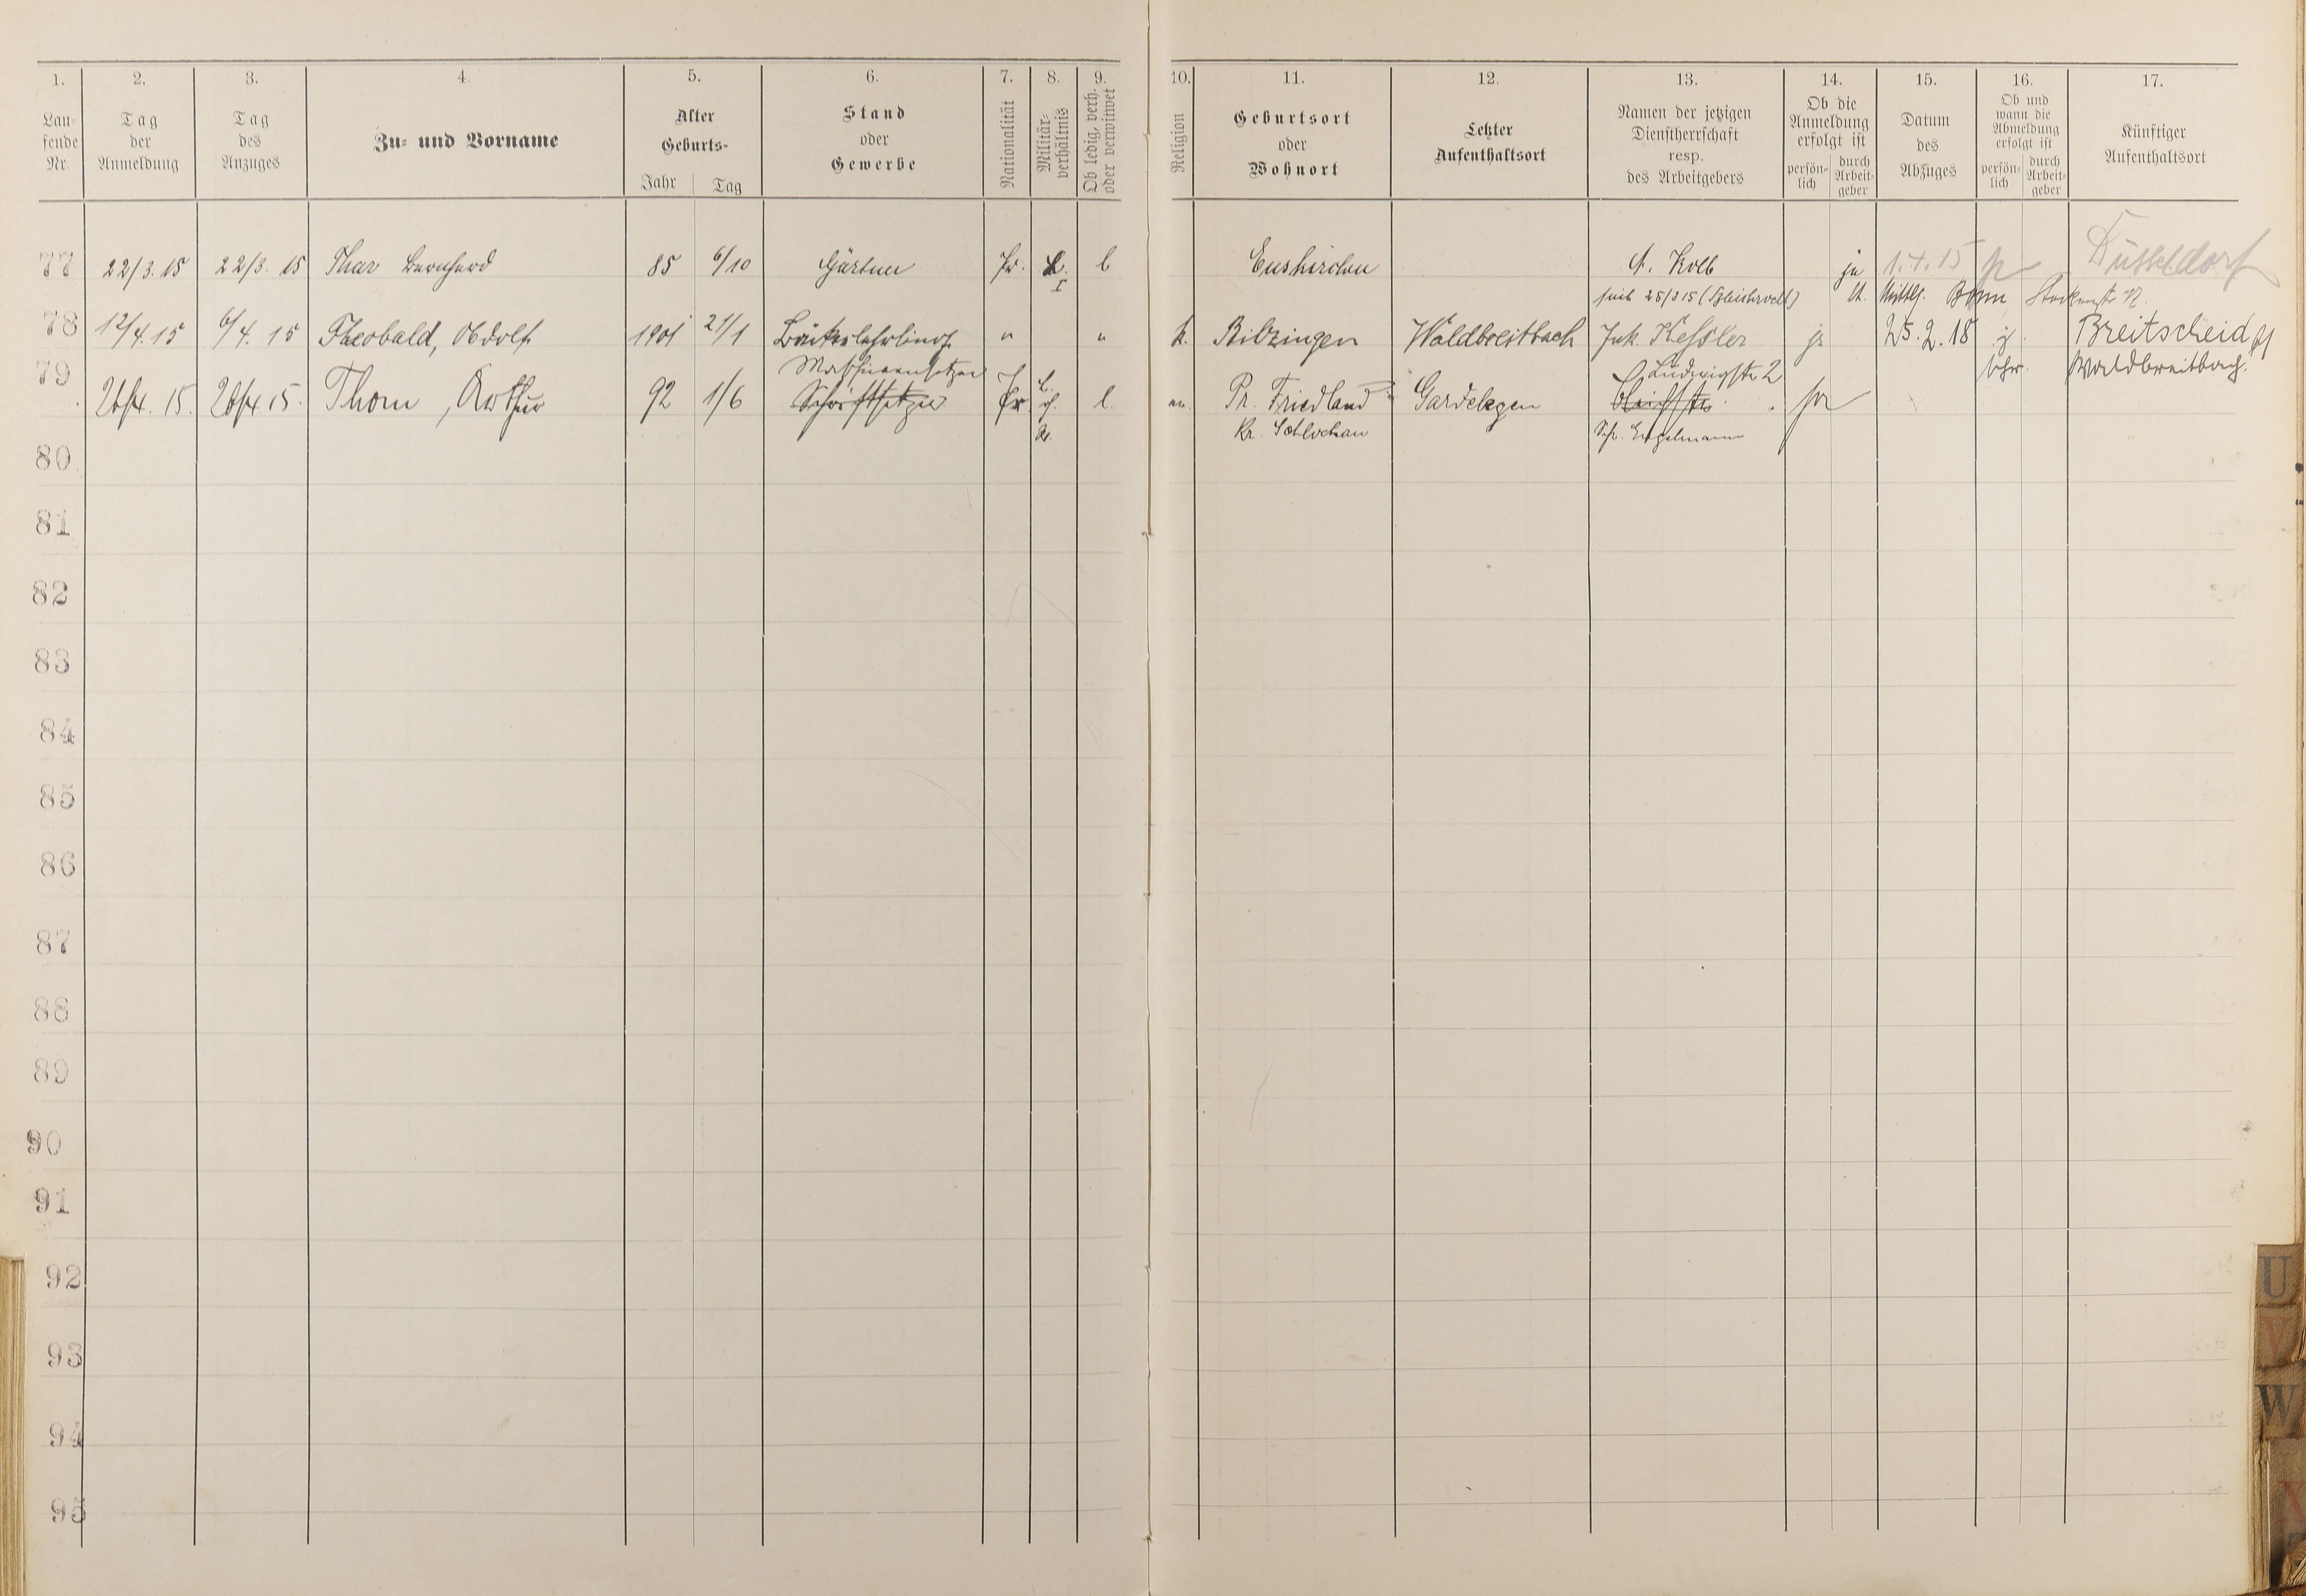 1. 2. 3. 4. 5. 6. 7. 8. 9. 10. 11. 12. 13. 14. 15. 16. 17.
Lau-
fende
Nr.
Tag
der
Anmeldung
Tag
des
Anzuges
Zu- und Vorname
Alter
Geburts-
Jahr Tag
Stand
oder
Gewerbe
Nationalität
Militär-
verhältnis
Ob ledig, verh.
oder verwitwet
Religion
Geburtsort
oder
Wohnort
Letzter
Aufenthaltsort
Namen der jetzigen
Dienstherrschaft
resp.
des Arbeitgebers
Ob die
Anmeldung
erfolgt ist
persön-
lich
durch
Arbeit-
geber
Datum
des
Abzuges
Ob und
wann die
Abmeldung
erfolgt ist
persön-
lich
durch
Arbeit-
geber
Künftiger
Aufenthaltsort
77 22/3. 15 22/3. 15 Thar Bernhard 85 6/10 Gärtner Pr. l Euskirchen A. Kolb ja 1.4.15 Düsseldorf
seit 25/3 15 Bonn
78 12/4. 15 6/4. 15 Theobald, Adolf 1901 21/1 Bäckerlehrling " " k. Bilzingen Waldbreitbach Jak. Keßler ja 25.2.18 j. Breitscheid
Waldbreitbach.
79 Maschinensetzer Ludwigstr 2
26/4. 15. 26/4. 15. Thom, Arthur 92 1/6 Schriftsetzer Pr. l. Pr. Friedland Gardelegen
Kr. Schlochau Engelmann
80
81
82
83
84
85
86
87
88
89
90
91
92
93
94
95
U
V
W
X